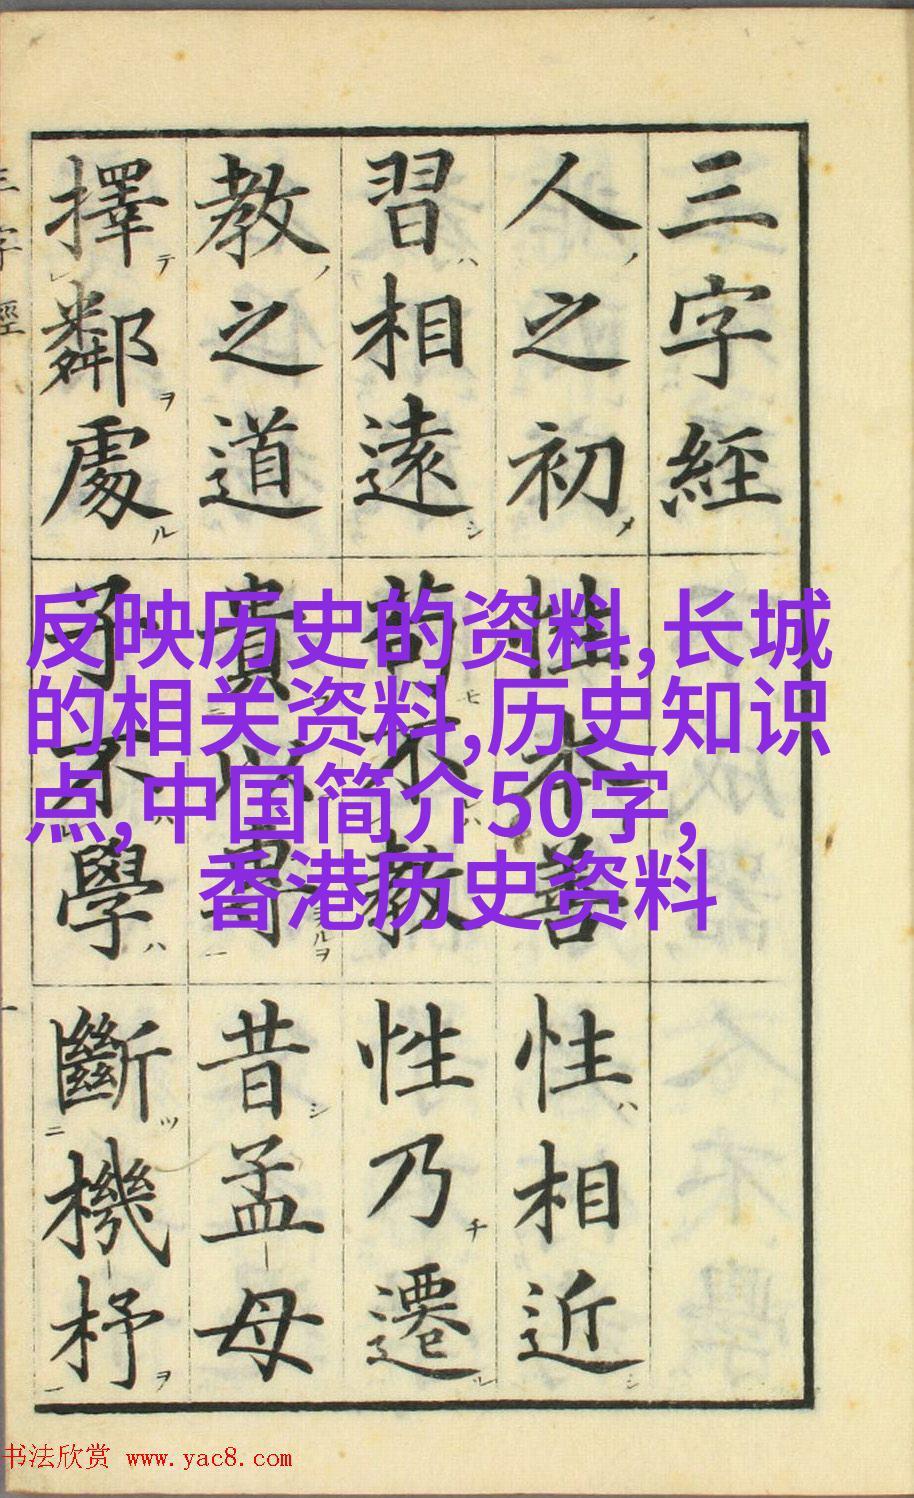 三字経
人之初性本善性相近
習相遠苟不教性乃遷
教之道貴以專昔孟母
擇鄰處子不學斷機杼
三字經 一
反映历史的资料,长城
的相关资料,历史知识
点,中国简介50字,
香港历史资料
书法欣赏 www.yac8.com